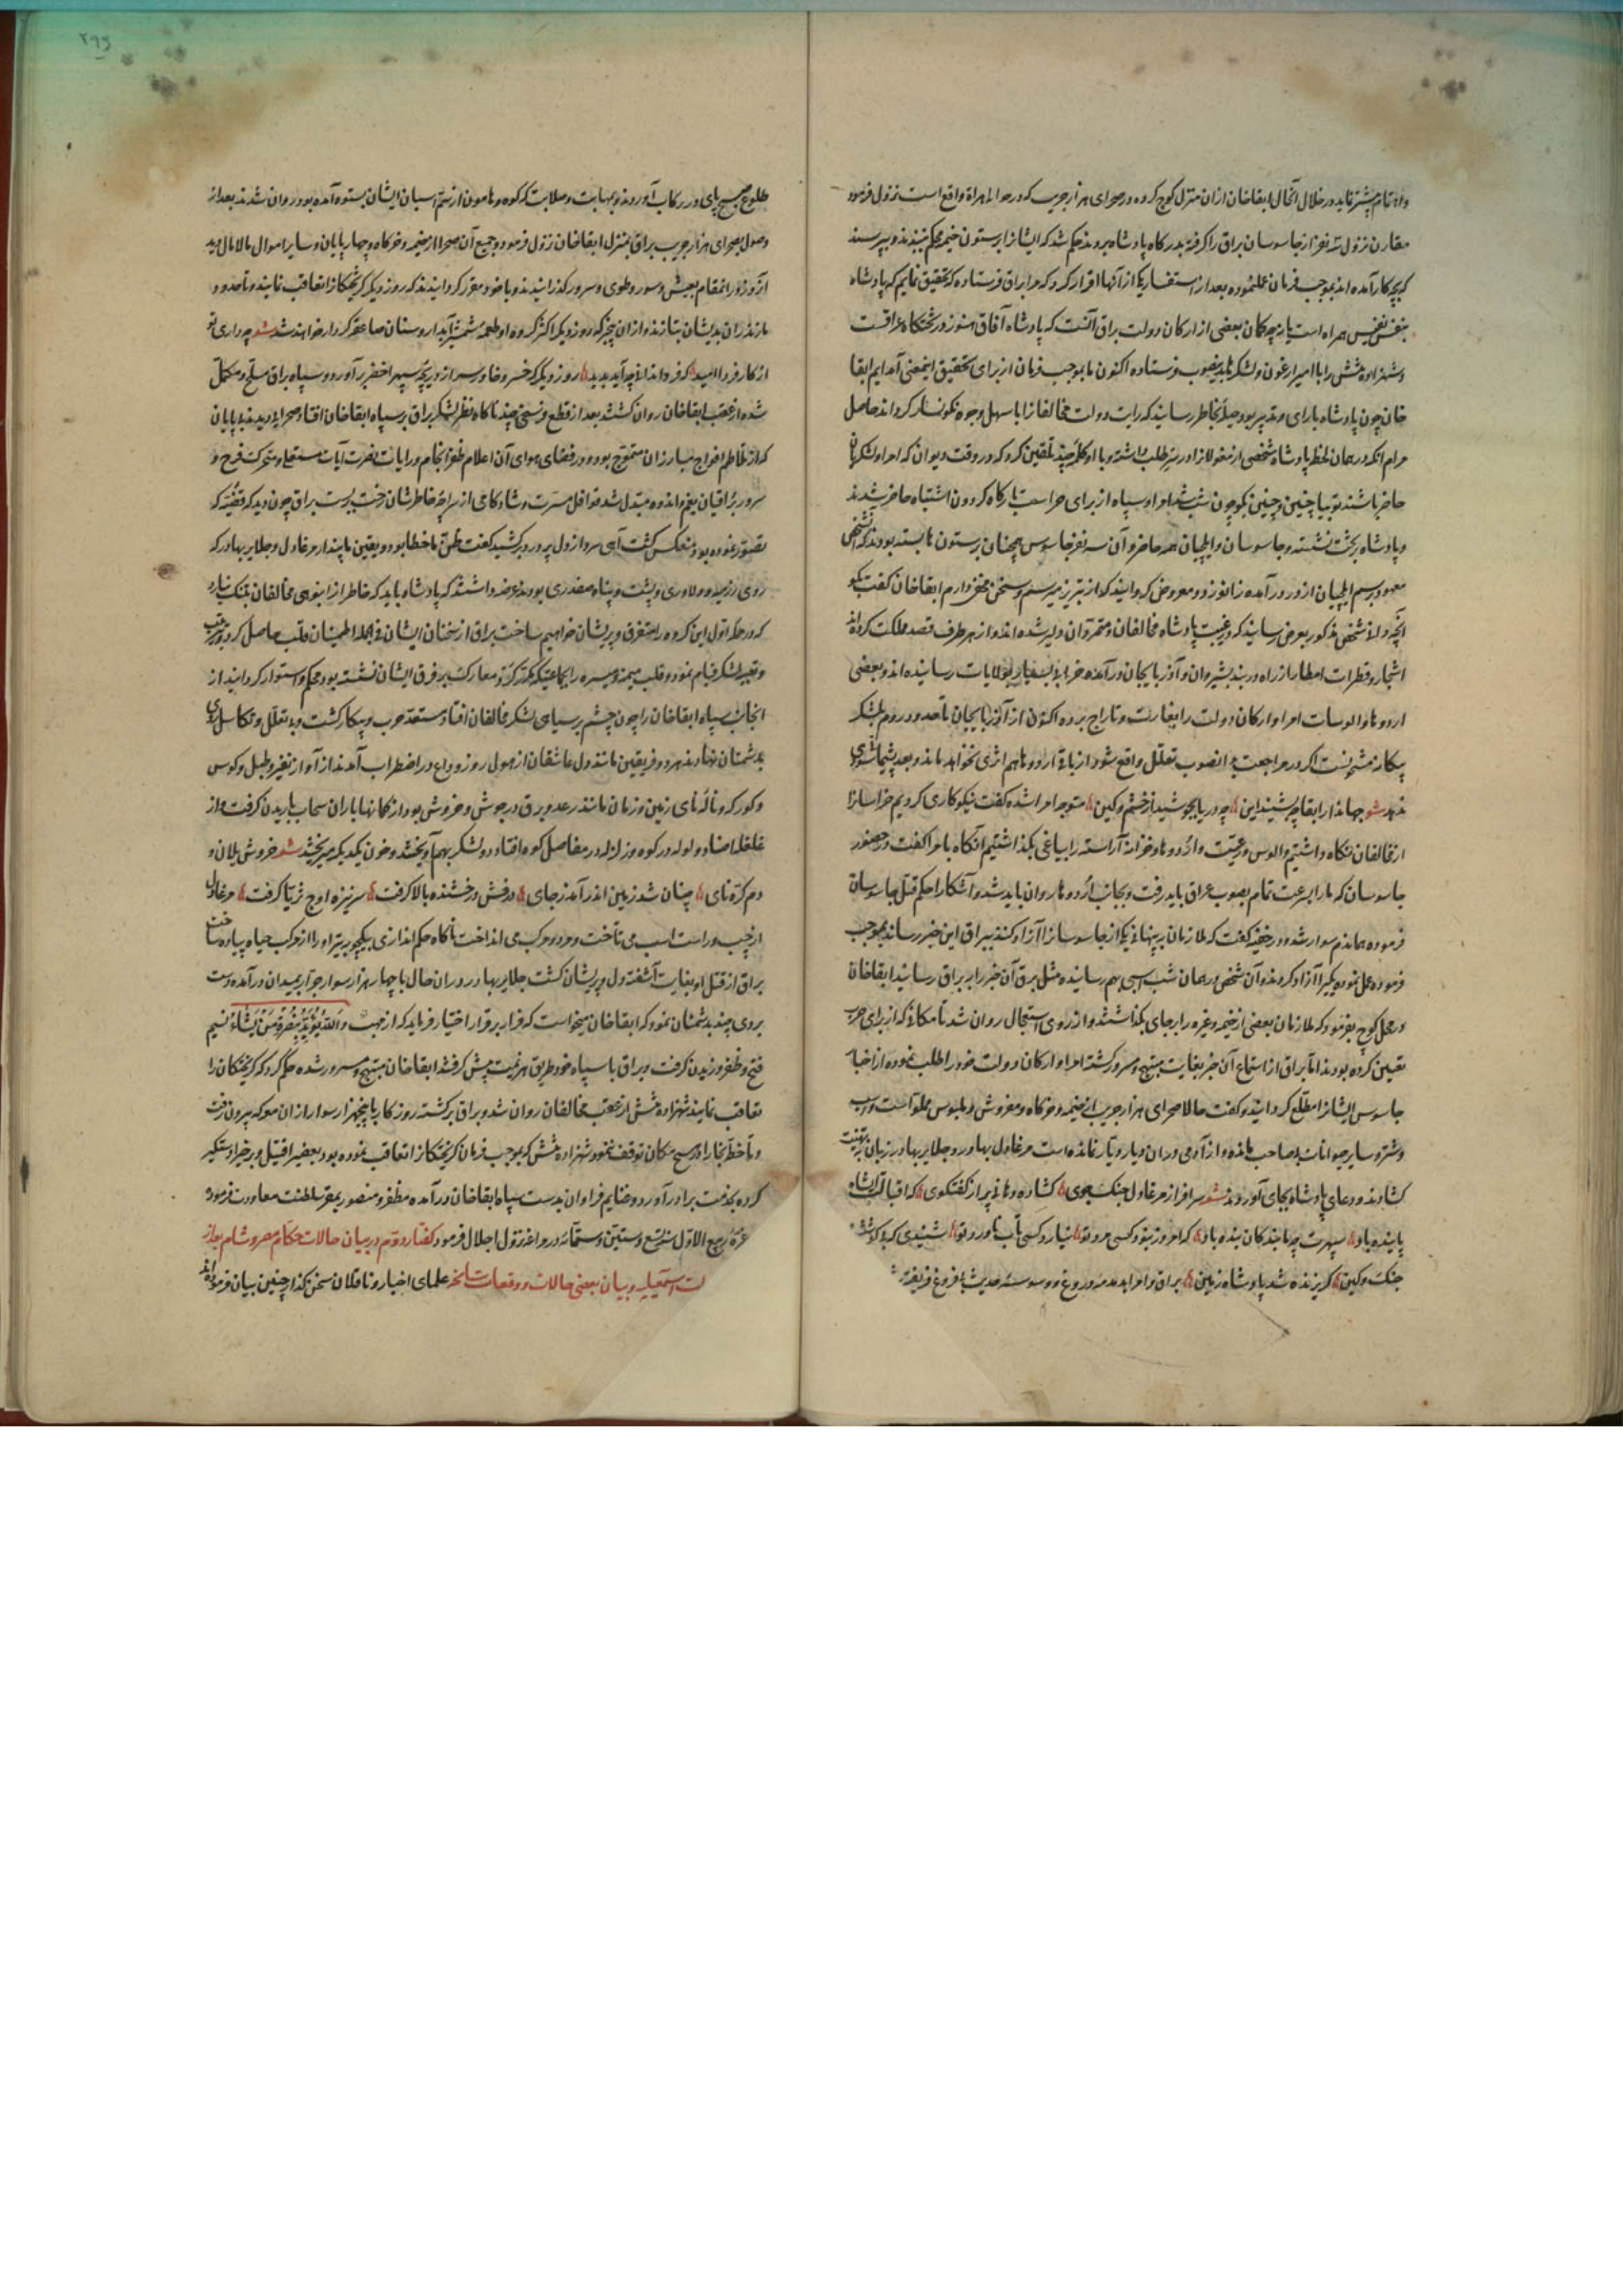 ولا تمام پیشتر نماید در خلال آنحال ابقاخان ازان منزل کوچ کرده در صحرای هزار جریب که در حوالی هراة واقع است نزول فرمود
مقارن نزول سه نفر از جاسوسان براق را گرفته بدرگاه پادشاه بردند حکم شد که ایشانرا بر ستون خیمه محکم ببندند و بپرسند
که بچه کار آمده اند بموجب فرمان عمل نموده بعد از استفسار یکی از آنها اقرار کرد که مرا براق فرستاده که تحقیق نمایم که پادشاه
بنفس نفیس همراه است یا نه چه گمان بعضی از ارکان دولت براق آنست که پادشاه آفاق هنوز در تختگاه عراقست
و شهزاده تبشین را با امیر ارغون و لشکرها بدینصوب فرستاده اکنون ما بموجب فرمان از برای تحقیق اینمعنی آمدایم ابقا
خان چون پادشاه با رای و تدبیر بود حیله بخاطر رسانید که رایت دولت مخالفانرا باسهل وجوه نگونسار گرداند حاصل
مرام آنکه در همان لحظه پادشاه شخصی از مغولانرا در سر طلب داشته و با او کلمه چند تلقین کرد که در وقت دیوان که امرا و لشکریان
حاضر باشند تو بیا و چنین و چنین بگو چون شب شد امرا و سپاه از برای حراست بارگاه گردون اشتباه حاضر شدند
و پادشاه بر تخت نشسته و جاسوسان و ایلچیان همه حاضر و آن سه نفر جاسوس همچنان بر ستون ها بسته بودند که آن شخص
معهود برسم ایلچیان از در درآمده زانو زد و معروض گردانید که از تبریز میرسم و سخن مخفی دارم ابقاخان گفت بگو
آنچه دانی شخص مذکور بعرض رسانید که در غیبت پادشاه مخالفان و متمردان دلیر شده اند و از هر طرف قصد مملکت کرده اند
اشجار و قطرات امطار از راه دربند بشیروان و آذربایجان درآمده خرابی بسیار بولایات رسانیده اند و بعضی
اردوها و الوسات امرا و ارکان دولت را بغارت و تاراج برده اکنون از آذربایجان تا حدود روم لشکر
بیگانه منتشر است اگر در مراجعت بدانصوب تعلل واقع شود از بقاء اردوها هم اثری نخواهد ماند و بعد پشیمانی سودی
ندهد شعر جهاندار ابقا چو بشنید این ؛ چو دریا بجوشید از خشم و کین ؛ متوجه امرا شده گفت نیکو کاری کردیم خراسانرا
از مخالفان نگاه داشتیم و الوس و رعیت و اردوها و خزانه آراسته را بیاغی بگذاشتیم آنگاه با امرا گفت در حضور
جاسوسان که ما را بسرعت تمام بصوب عراق باید رفت و بجانب اردوها روان باید شد و آشکارا حکم قتل جاسوسان
فرموده همان دم سوار شد و در خفیه گفت که ملازمان پنهانی یکی از جاسوسانرا آزاد کنند ببراق این خبر رساند بموجب
فرموده عمل نموده یکی را آزاد کردند و آن شخص در همان شب اسبی بهم رسانیده مثل برق آن خبر را به براق رسانید ابقاخان
در محل کوچ بفرمود که ملازمان بعضی از خیمه و غیره را بر جای بگذاشتند و از روی استعجال روان شد تا مکانی که از برای حرب
تعیین کرده بودند اما براق از استماع آن خبر بغایت مبتهج و مسرور گشته امرا و ارکان دولت خود را طلب نموده از اخبار
جاسوس ایشانرا مطلع گردانید و گفت حالا صحرای هزار جریب از خیمه و خرگاه و مفروش و ملبوس مملو است و اسب
و شتر و سایر حیوانات بلا صاحب مانده و از آدمی دران دیار دیار نمانده است مرغاول بهادر و جلایر بهادر زبان بتهنیت
گشادند و دعای پادشاه بجای آوردند شعر سرافراز مرغاول جنگ جوی ؛ گشاده دهانی پر از گفتگوی ؛ که اقبالت ای شاه
پاینده باد ؛ سپهرت چو ما بندگان بنده باد ؛ که امروز نبود کسی مرد تو ؛ نیارد کسی تاب ناورد تو ؛ شنیدی که
جنگ و کین ؛ گریزنده شد پادشاه زمین ؛ براق و امرا بدمدمه دروغ و وسوسه حدیث بیفروغ فریفته شده
طلوع صبح پای در رکاب آوردند و بمهابت و صلابت که کوه و هامون از سم اسبان ایشان بستوه آمده بود روان شدند بعد از
وصول بصحرای هزار جریب براق بمنزل ابقاخان نزول فرمود و جمیع آن صحرا از خیمه و خرگاه و چهارپایان و سایر اموال مالامال دید
آن روز در آنمقام بعیش و سور و طوی و سرور گذرانیدند و با خود مقرر گردانیدند که روز دیگر گریختگانرا تعاقب نمایند و تا حدود
مازندران بدیشان بتازند و ازان بیخبر که روز دیگر اکثر گروه او طعمه شمشیر آبدار و سنان صاعقه کردار خواهند شد شعر چه داری تو
از کار فردا امید ؛ که فردا ندانی چه آید پدید ؛ روز دیگر که خسرو خاور سر از دریچه سپهر اخضر برآورد و سپاه براق مسلح و مکمل
شده از عقب ابقاخان روان گشتند بعد از قطع فرسخی چند ناگاه نظر لشکر براق بر سپاه ابقاخان افتاد صحرائی دیدند بی پایان
که از تلاطم افواج مبارزان متموج بود و در فضای هوای آن اعلام ظفر انجام و رایات نصرت آیات مستعلی و متحرک فرح و
سرور براقیان بغم و اندوه مبدل شد قوافل مسرت و شادکامی از سراچه خاطرشان رخت بر بست براق چون دید که قضیه که
تصور نموده بود منعکس گشت آهی سرد از دل پر درد برکشید گفت ظن ما خطا بود و یقین ما پندار مرغاول و جلایر بهادر که
روی رزم و دلاوری و پشت و پناه صفدری بودند عرضه داشتند که پادشاه باید که خاطر از انبوهی مخالفان بتنگ نیارد
که در حمله اول این گروه را متفرق و پریشان خواهیم ساخت براق از سخنان ایشان فی الجمله اطمینان قلب حاصل کرد و بترتیب
و تعبیه لشکر قیام نموده و قلب و میمنه و میسره را بجماعتیکه گرد معارک بر فرق ایشان نشسته بود محکم و استوار گردانید از
انجانب سپاه ابقاخان را چون چشم بر سیاهی لشکر مخالفان افتاد مستعد حرب و پیکار گشت و بی تعلل و تکاسل روی
بدشمنان نهادند هر دو فریقین مانند دل عاشقان از هول روز وداع در اضطراب آمدند از آواز نفیر و طبل و کوس
و کورکه و ناله نای زمین و زمان مانند رعد و برق در جوش و خروش بود از کمانها باران سحاب باریدن گرفت و از
غلغله اضداد ولوله در کوه و زلزله در مفاصل کوه افتاد دو لشکر بهم آویختند و خون یکدیگر میریختند شعر خروش یلان و
دم کره نای ؛ چنان شد زمین اندر آمد ز جای ؛ درفش درخشنده بالا گرفت ؛ سر نیزه اوج ثریا گرفت ؛ مرغاول
از چپ و راست اسب می تاخت و مرد و مرکب می انداخت ناگاه حکم اندازی بیک چوبه تیر او را از مرکب حیاة پیاده ساخت
براق از قتل او بغایت آشفته دل و پریشان گشت جلایر بهادر دران حال با چهار هزار سوار جرار بمیدان درآمده دست
بردی چند بدشمنان نمود که ابقاخان میخواست که فرار بر قرار اختیار فرماید که از مهب وَاللّٰهُ یُؤَیِّدُ بِنَصْرِهِ مَنْ یَشَاءُ نسیم
فتح و ظفر وزیدن گرفت و براق با سپاه خود طریق هزیمت پیش گرفتند ابقاخان مبتهج و مسرور شده حکم کرد که گریختگان را
تعاقب نمایند شهزاده تبشین از عقب مخالفان روان شد و براق برگشته روزگار با پنجهزار سوار ازان معرکه بیرون رفت
و تا خطه بخارا در هیچ مکان توقف ننمود شهزاده تبشین که بموجب فرمان گریختگانرا تعاقب نموده بود بعضی را قتیل و برخی را دستگیر
کرده بخدمت برادر آورد و غنایم فراوان بدست سپاه ابقاخان درآمده مظفر و منصور بمقر سلطنت معاودت فرموده
غره ربیع الاول سنه تسع و ستین و ستمائة در مراغه نزول اجلال فرمود گفتار دوم در بیان حالات حکام مصر و شام بعد از
اسمعیلیه و بیان بعضی حالات و وقعات سانحه علمای اخبار و ناقلان سخن گذار چنین بیان فرموده اند